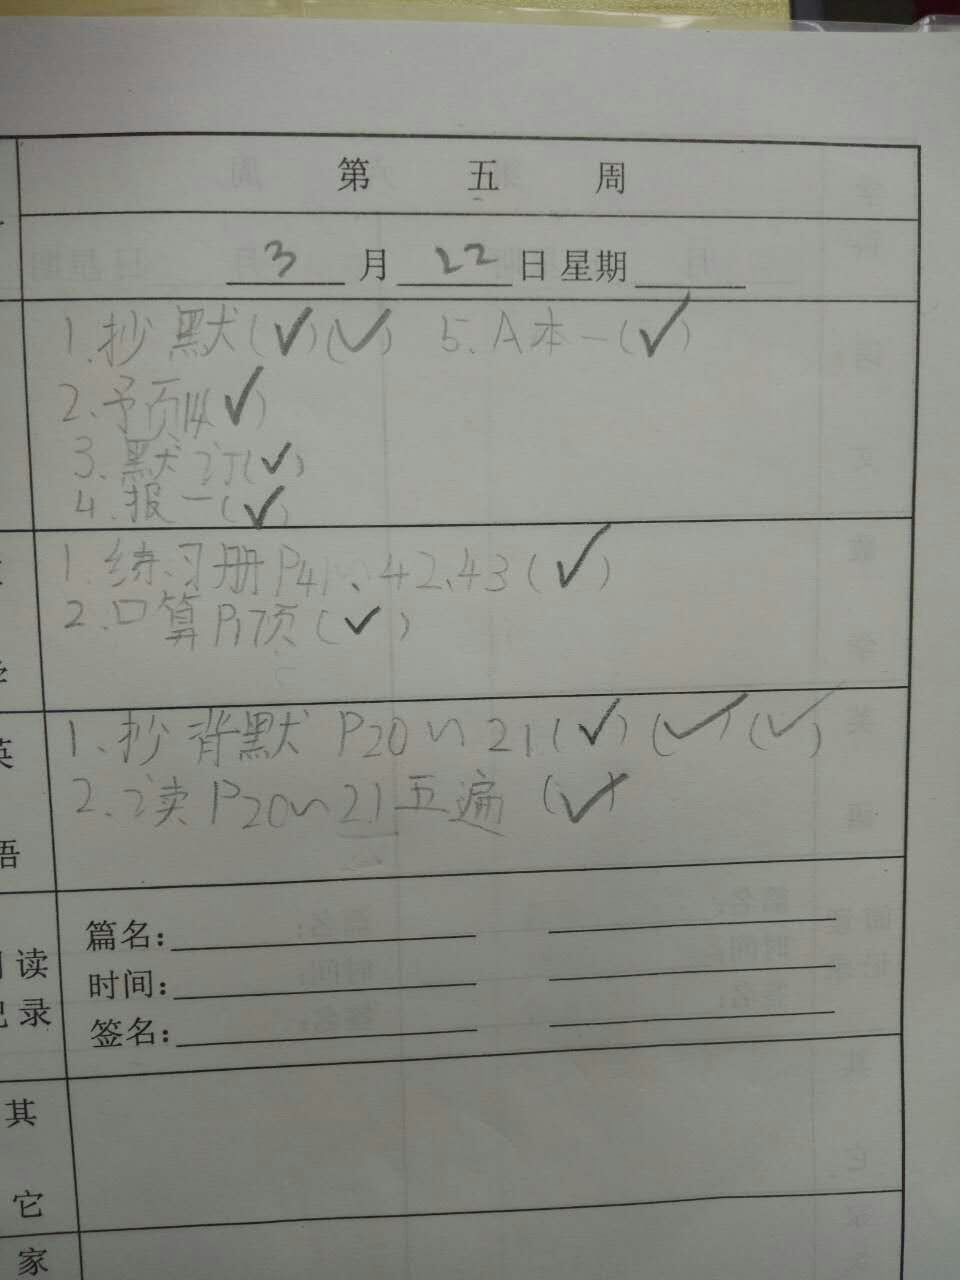 第 五 周
3 月 22 日 星期
1.抄 默(✓)(✓) 5.A本一(✓)
2.予页14(✓)
3.默订(✓)
4.报一(✓)
1.练习册P41、42、43(✓)
2.口算P17页(✓)
英
1.抄 背默 P20~21(✓)(✓)(✓)
2.读P20~21五遍 (✓)
语
读
篇名:
时间:
录
签名:
其
它
家